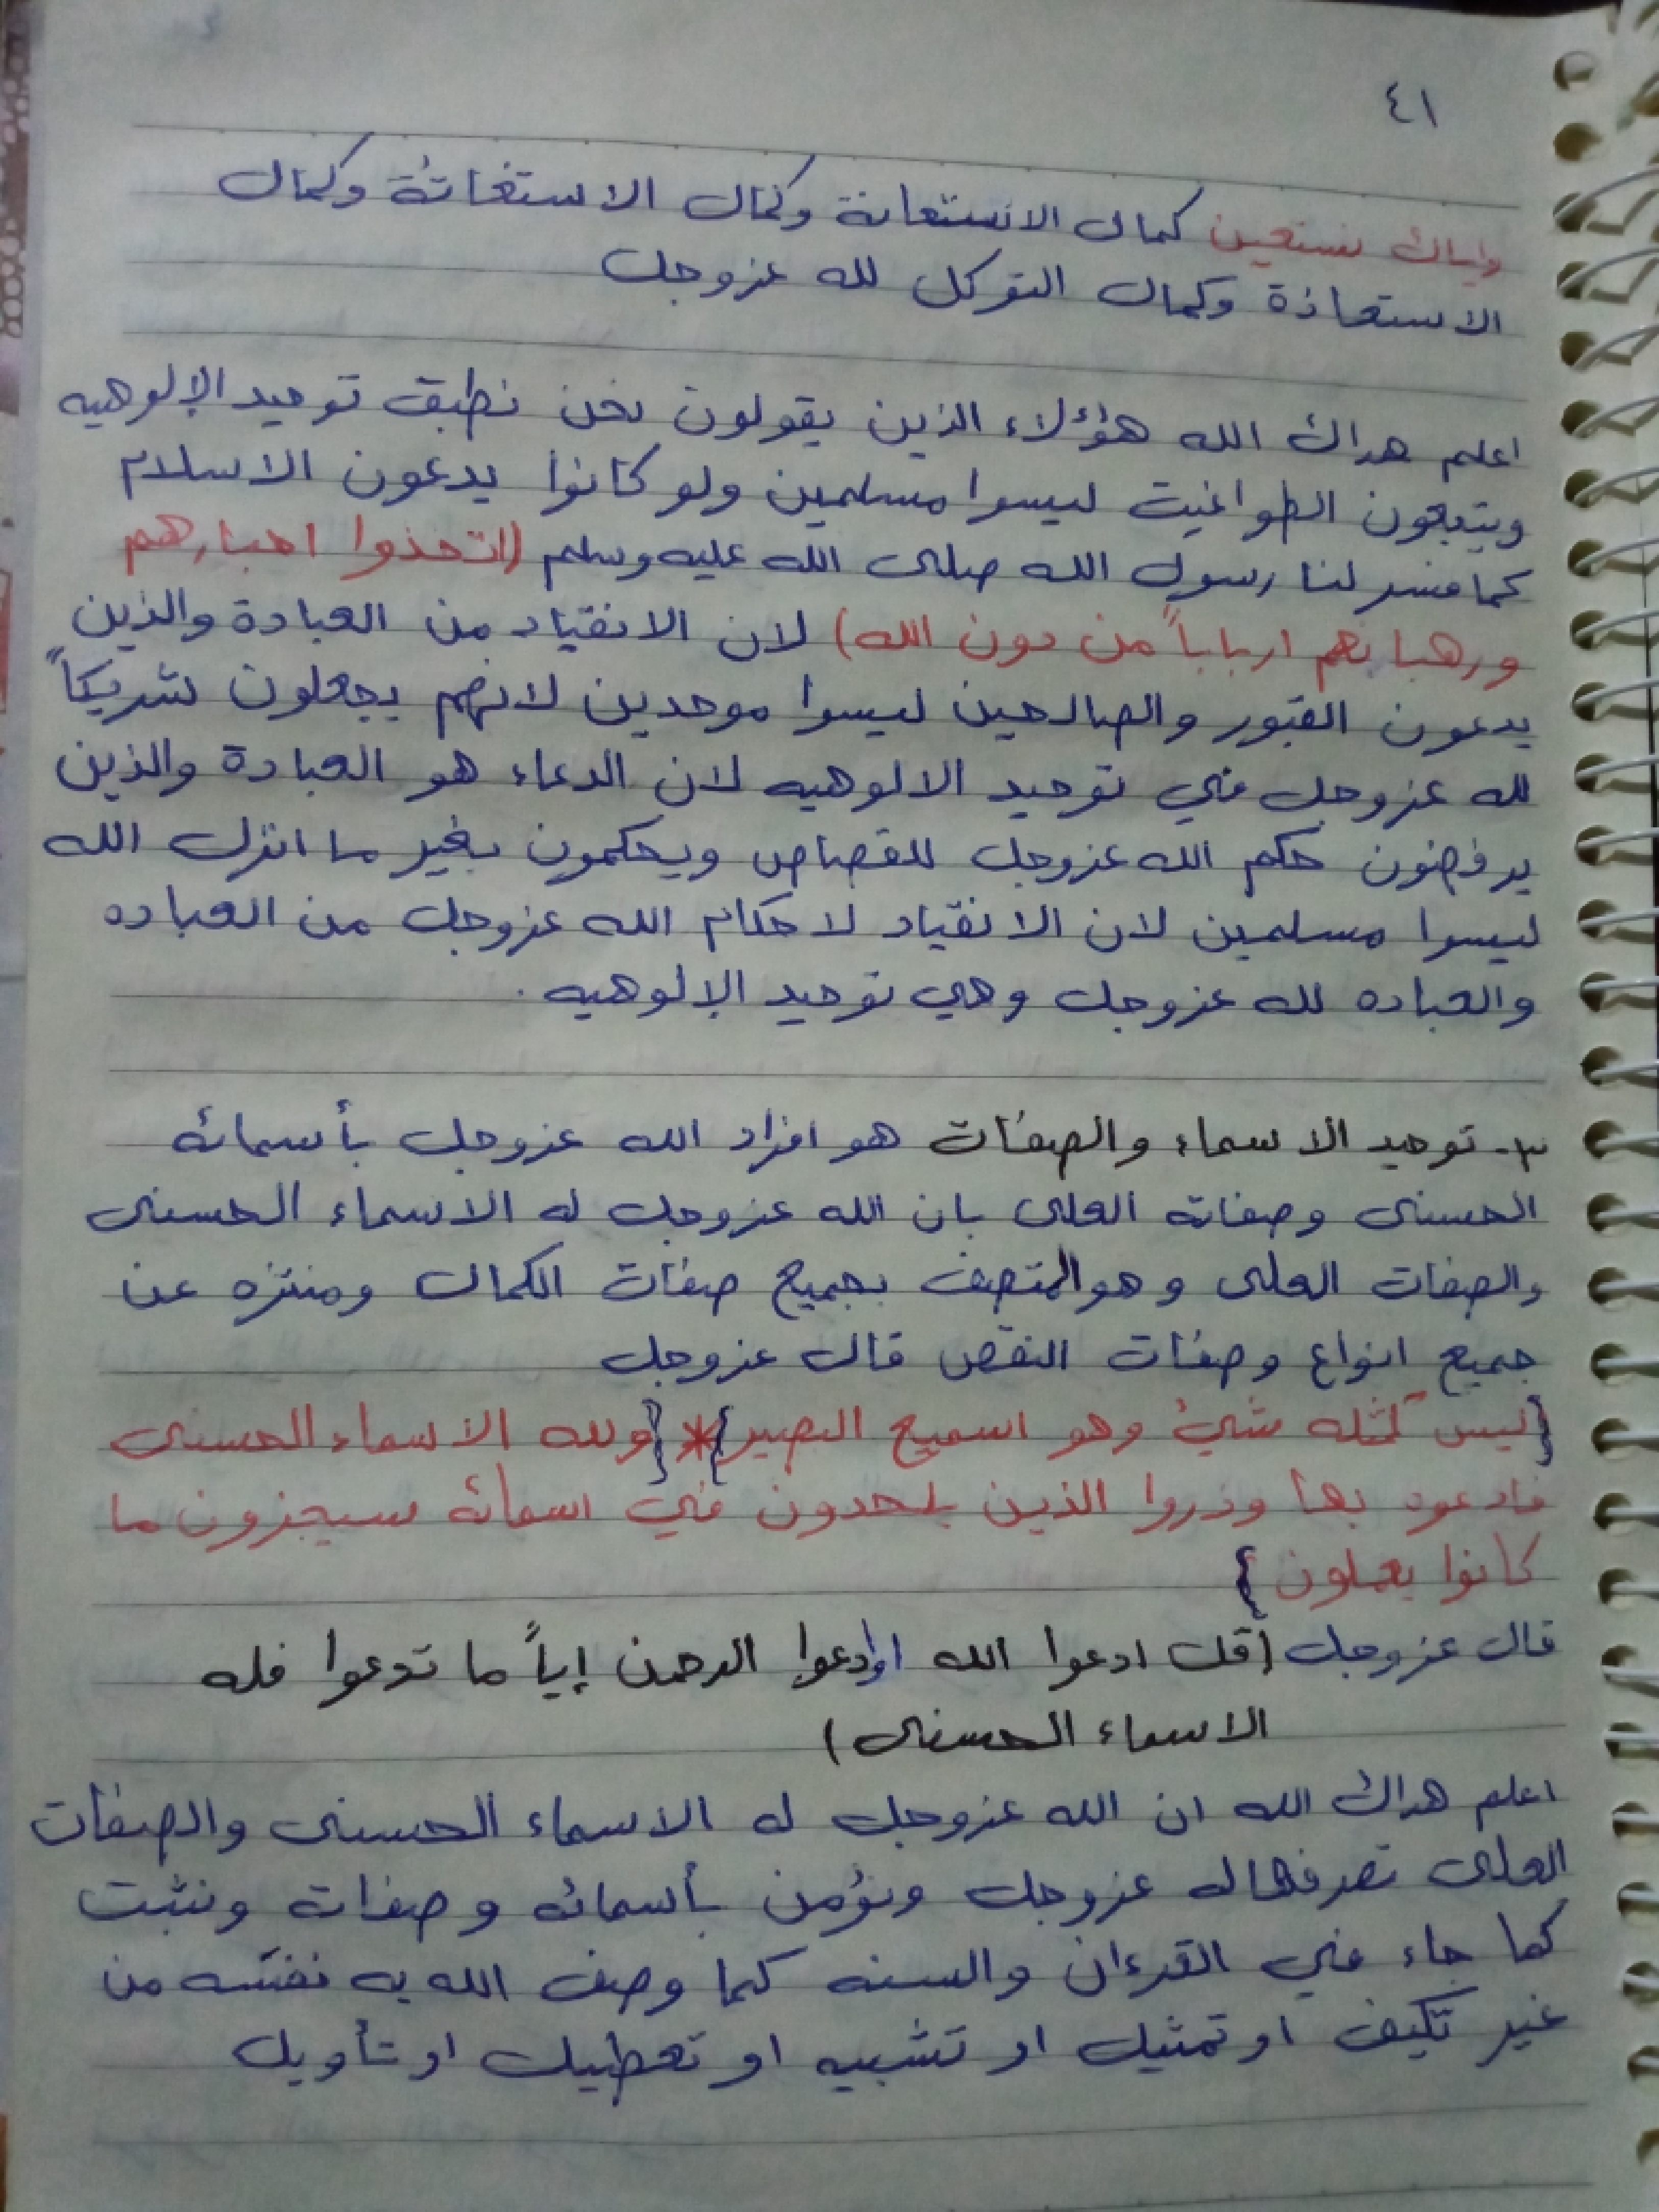 ٤١
واياك نستعين كمال الاستعانة وكمال الاستغاثة وكمال
الاستعاذة وكمال التوكل لله عزوجل
اعلم هداك الله هؤلاء الذين يقولون نحن نطبق توحيد الإلوهيه
ويتبعون الطواغيت ليسوا مسلمين ولو كانوا يدعون الاسلام
كما فسر لنا رسول الله صلى الله عليه وسلم (اتخذوا احبارهم
ورهبانهم ارباباً من دون الله) لان الانقياد من العبادة والذين
يدعون القبور والصالحين ليسوا موحدين لانهم يجعلون شريكاً
لله عزوجل في توحيد الالوهيه لان الدعاء هو العبادة والذين
يرفضون حكم الله عزوجل للقصاص ويحكمون بغير ما انزل الله
ليسوا مسلمين لان الانقياد لاحكام الله عزوجل من العباده
والعباده لله عزوجل وهي توحيد الإلوهيه.
٣- توحيد الاسماء والصفات هو افراد الله عزوجل بأسمائه
الحسنى وصفاته العلى بان الله عزوجل له الاسماء الحسنى
والصفات العلى وهو المتصف بجميع صفات الكمال ومنتزه عن
جميع انواع وصفات النقص قال عزوجل
{ليس كمثله شيئ وهو اسميع البصير} * {ولله الاسماء الحسنى
فادعوه بها وذروا الذين يلحدون في اسمائه سيجزون ما
كانوا يعملون}
قال عزوجل (قل ادعوا الله اوادعوا الرحمن إياً ما تدعوا فله
الاسماء الحسنى)
اعلم هداك الله ان الله عزوجل له الاسماء الحسنى والصفات
العلى نصرفها له عزوجل ونؤمن بأسمائه وصفاته ونثبت
كما جاء في القرءان والسنه كما وصف الله به نفسه من
غير تكيف او تمثيل او تشبيه او تعطيل او تأويل